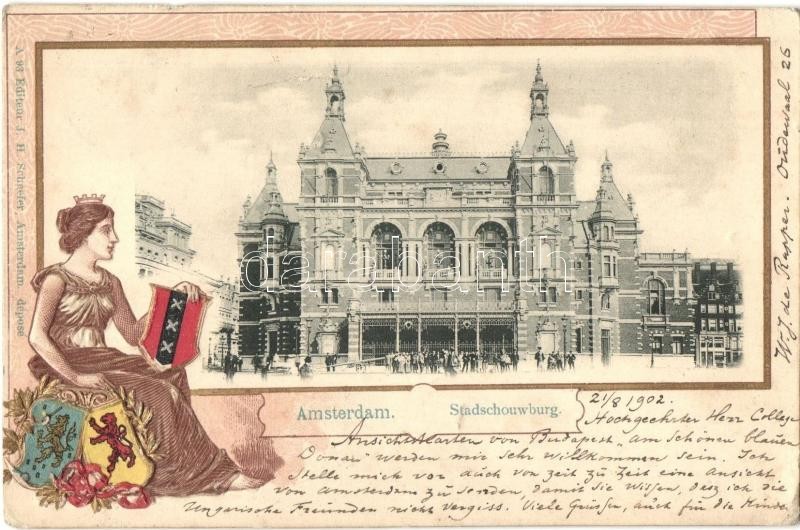 A 98 Editeur J. H. Schaefer, Amsterdam. déposé
darabanth
Amsterdam.
Stadschouwburg.
21/8 1902.
Hochgeehrter Herr College
Ansichtskarten von Budapest "am schönen blauen
Donau" werden mir sehr willkommen sein. Ich
stelle mich vor auch von zeit zu zeit eine Ansicht
von Amsterdam zu senden, damit Sie wissen, dasz ich die
Ungarische Freunden nicht vergiss. Viele Grüssen, auch für die Kinder
W. J. de Ruyper. Oudewaal 26